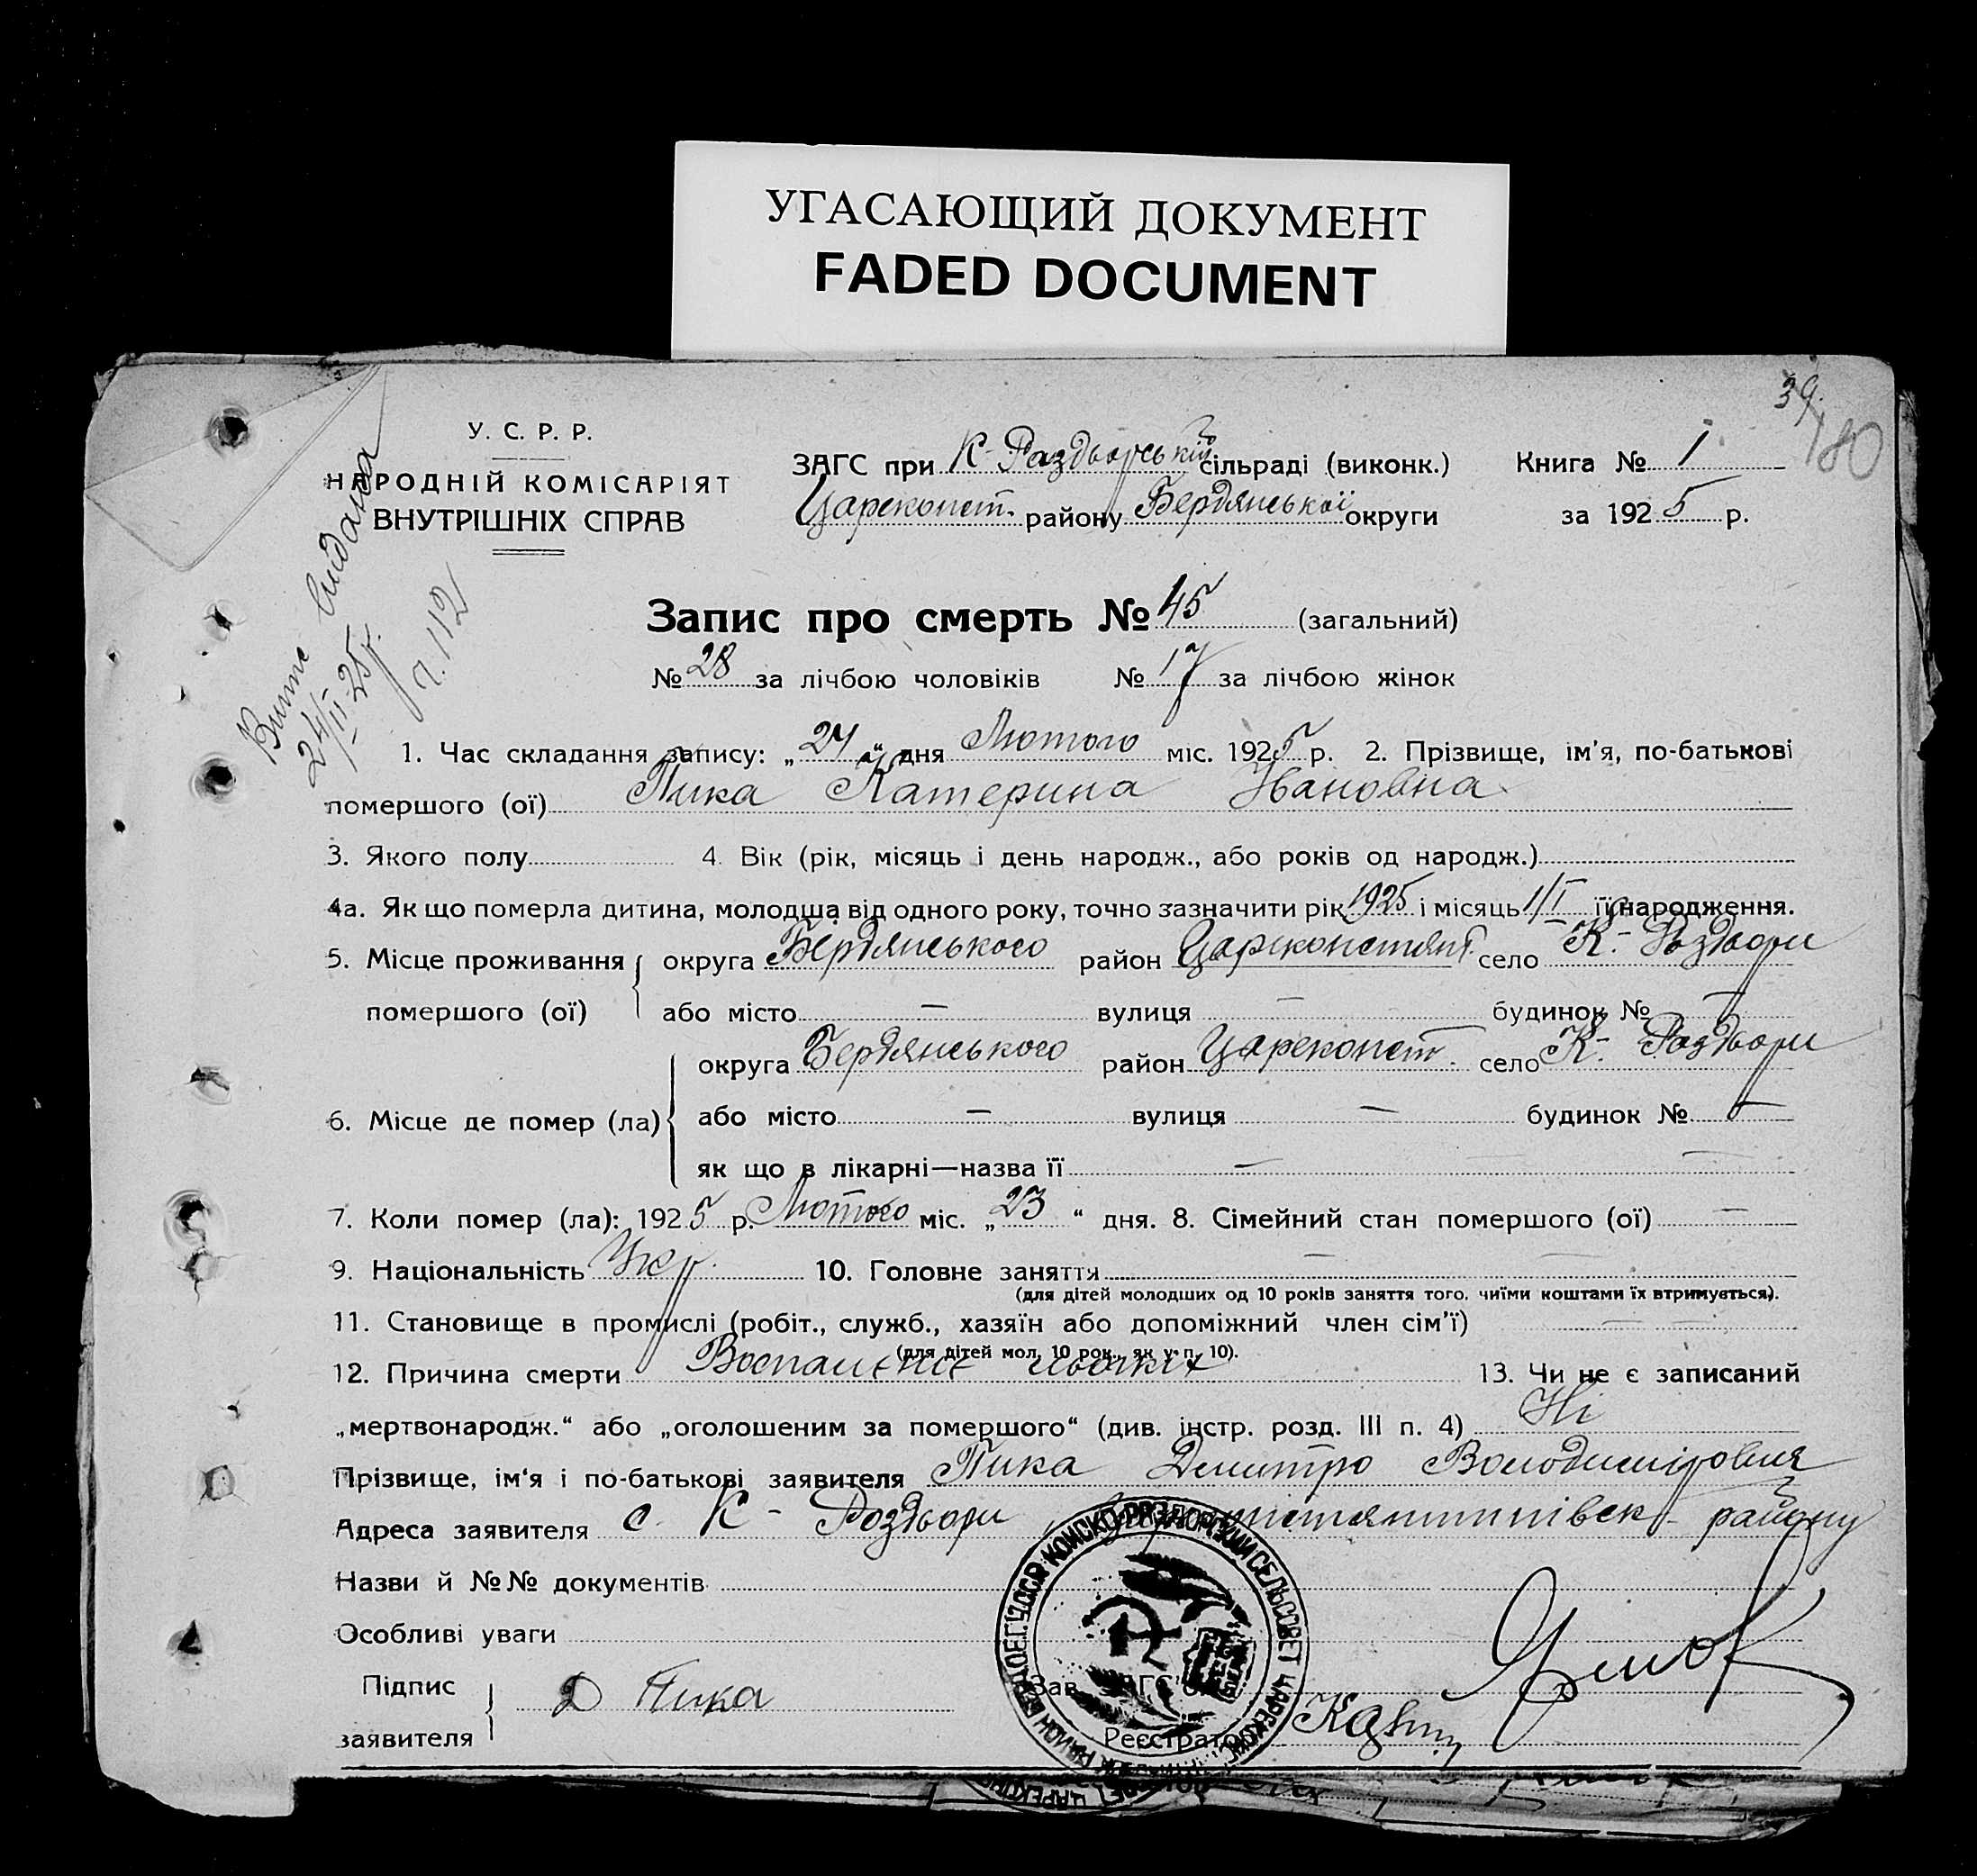 УГАСАЮЩИЙ ДОКУМЕНТ
FADED DOCUMENT
39.
180
У. С. Р. Р.
НАРОДНІЙ КОМІСАРІЯТ
ВНУТРІШНІХ СПРАВ
ЗАГС при К-Роздорський сільраді (виконк.) Книга № 1
Цареконст. району Бердянської округи за 1925 р.
Витяг видана
24/II-25р.
п. 112
Запис про смерть № 45 (загальний)
№ 28 за лічбою чоловіків № 17 за лічбою жінок
1. Час складання запису: „24“ дня Лютого міс. 1925 р. 2. Прізвище, ім'я, по-батькові
помершого (ої) Пика Катерина Ивановна
3. Якого полу 4. Вік (рік, місяць і день народж., або років од народж.)
4а. Як що померла дитина, молодша від одного року, точно зазначити рік 1925 і місяць 1/I її народження.
5. Місце проживання округа Бердянського район Цареконстант. село К.- Роздори
помершого (ої) або місто — вулиця — будинок № —
округа Бердянського район Цареконст. село К.- Роздори
6. Місце де помер (ла) або місто — вулиця — будинок № —
як що в лікарні—назва її —
7. Коли помер (ла): 1925 р. Лютого міс. „23“ дня. 8. Сімейний стан помершого (ої) —
9. Національність Укр. 10. Головне заняття —
(для дітей молодших од 10 років заняття того, чиїми коштами їх втримується).
11. Становище в промислі (робіт., служб., хазяїн або допоміжний член сім'ї) —
(для дітей мол. 10 рок., як у п. 10).
12. Причина смерти Воспаление 13. Чи не є записаний
„мертвонародж.“ або „оголошеним за помершого“ (див. інстр. розд. III п. 4) Ні
Прізвище, ім'я і по-батькові заявителя Пика Дмитро Володимировия
Адреса заявителя с. К - Роздори району
Назви й №№ документів
Особливі уваги
Підпис
заявителя Д Пика
Зав. ЗАГС'ом
Реєстратор
КОНСКО-РАЗДОРСКИЙ СЕЛЬСОВЕТ ЦАРЕКОНС